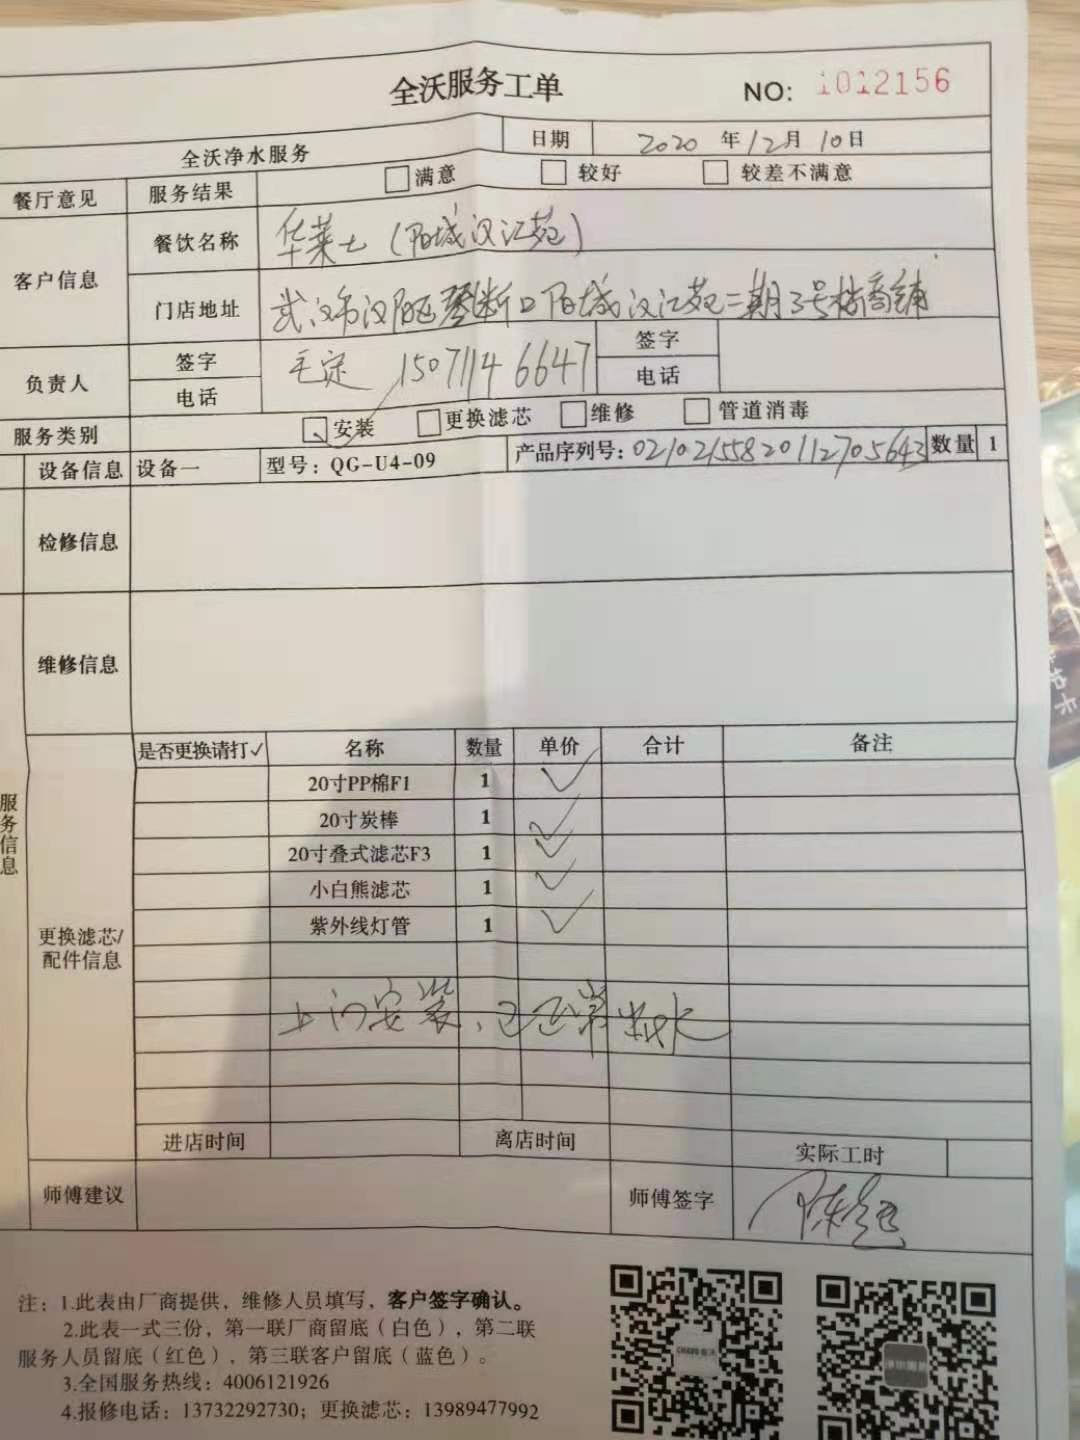 全沃服务工单
NO: 1012156
全沃净水服务 日期 2020 年 12 月 10 日
餐厅意见 服务结果 满意 较好 较差不满意
客户信息 餐饮名称 华莱士（阳城汉江苑）
门店地址 武汉市汉阳区琴断口阳城汉江苑二期3号楼商铺
负责人 签字 毛定 签字
电话 15071146647 电话
服务类别 安装 更换滤芯 维修 管道消毒
设备信息 设备一 型号：QG-U4-09 产品序列号：02102155820112705643 数量 1
检修信息
维修信息
服务信息
更换滤芯/配件信息
是否更换请打✓ 名称 数量 单价 合计 备注
20寸PP棉F1 1 ✓
20寸炭棒 1 ✓
20寸叠式滤芯F3 1 ✓
小白熊滤芯 1 ✓
紫外线灯管 1 ✓
上门安装、已正常出水
进店时间 离店时间 实际工时
师傅建议 师傅签字
注：1.此表由厂商提供，维修人员填写，客户签字确认。
2.此表一式三份，第一联厂商留底（白色），第二联
服务人员留底（红色），第三联客户留底（蓝色）。
3.全国服务热线：4006121926
4.报修电话：13732292730；更换滤芯：13989477992